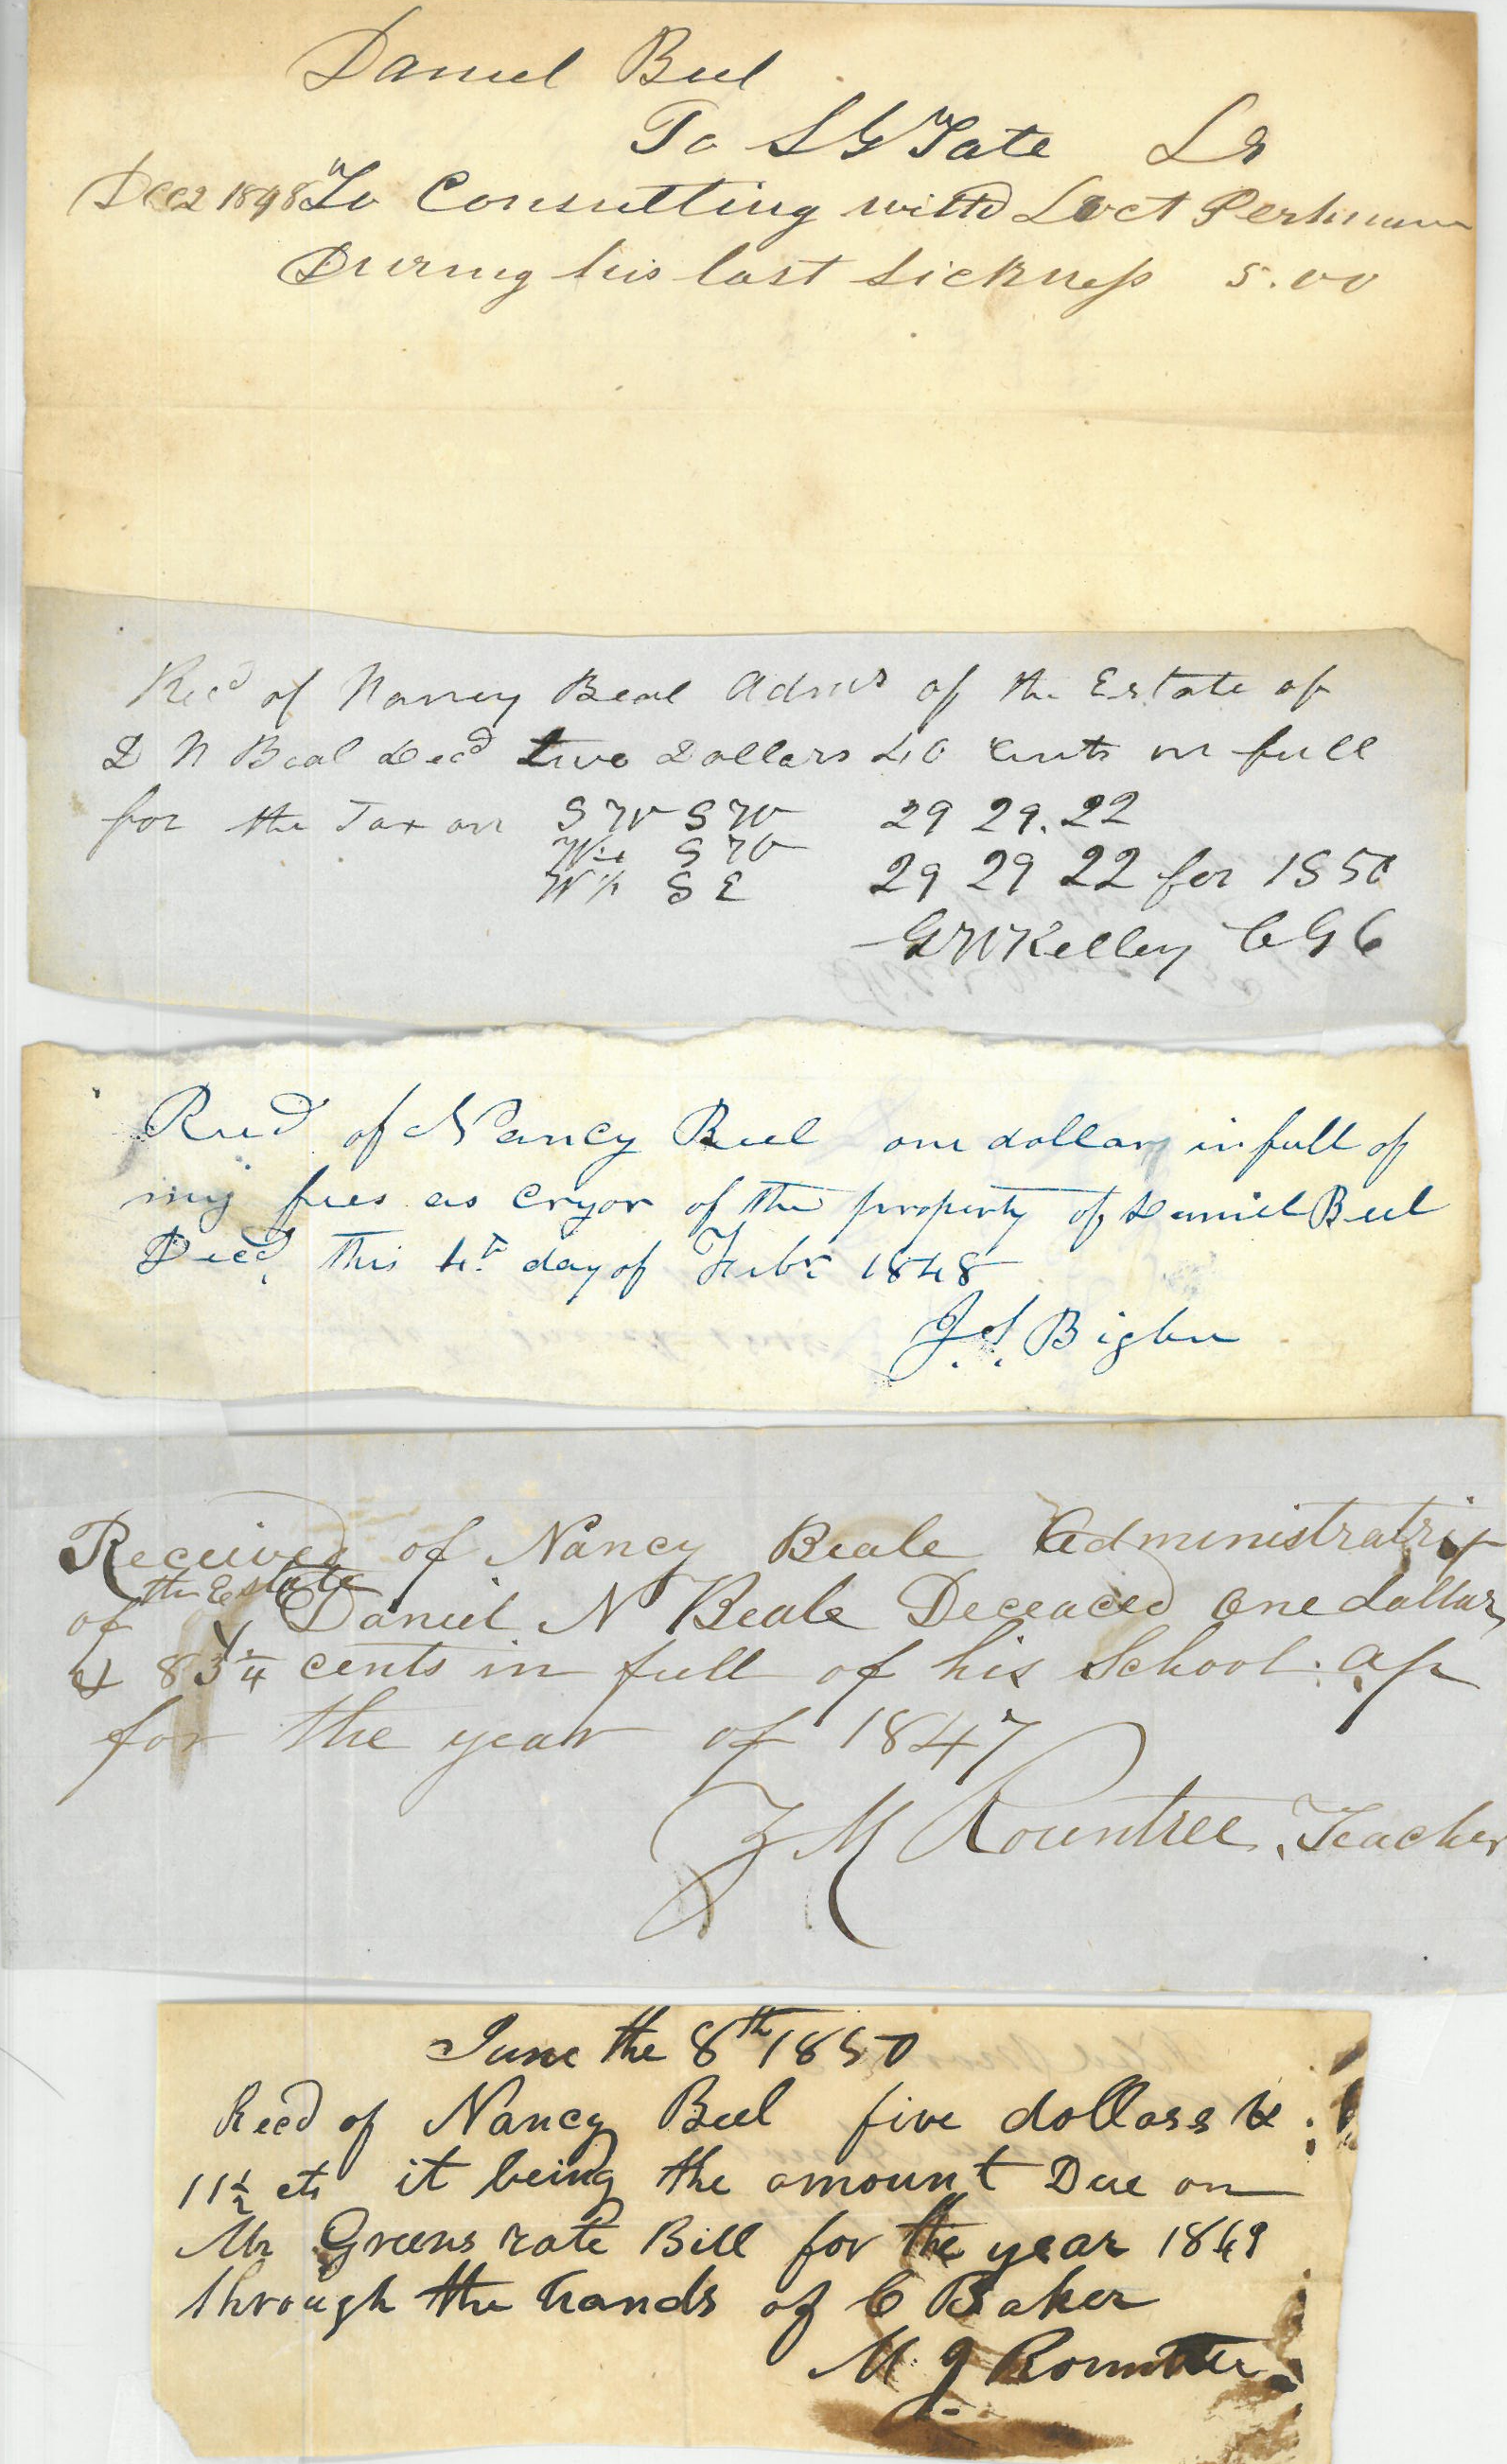 Daniel Beel
To S G W Tate Dr
Dec 2 1848 To Consulting with Doct Perkins
During his last Sickness 5.00
Recd of Nancy Beal Admrs of the Estate of
D N Beal Decd two Dollars 40 Cents in full
for the Tax on SW SW 29 29. 22
W½ SW
W½ SE 29 29 22 for 1850
G W Kelley C G C
Recd of Nancy Beel one dollar in full of
my fees as Cryor of the property of Daniel Beel
Decd, this 4th day of Febr 1848
J. S. Bigbee
Received of Nancy Beale Administratrix
of the Estate Daniel N Beale Deceaced One dollar
& 83¼ cents in full of his School. ap
for the year of 1847
Z M Rountree, Teacher
June the 8th 1850
Recd of Nancy Beel five dollars &
11½ cts it being the amount Due on
Mr Greens rate Bill for the year 1849
through the hands of C Baker
M. J Rountree